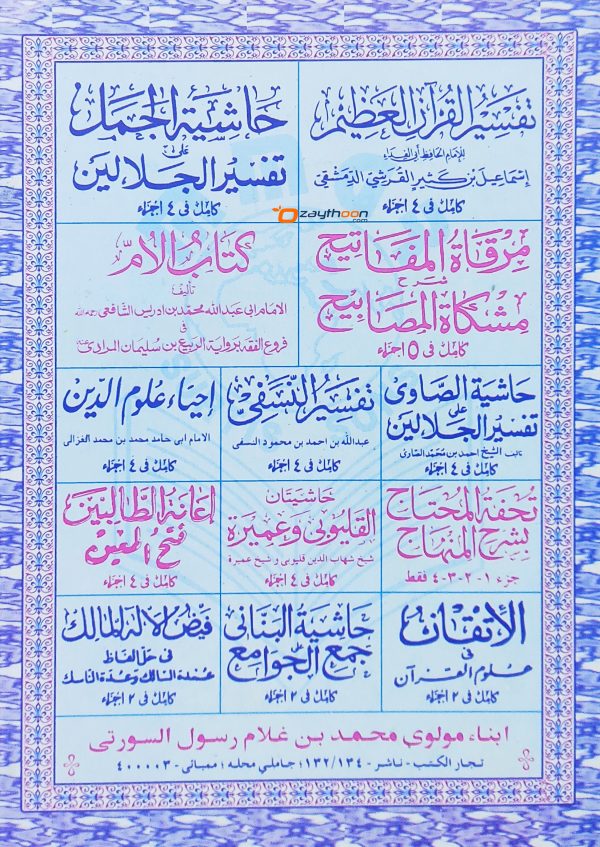 تفسير القرآن العظيم
للإمام الحافظ أبي الفداء
إسماعيل بن كثير القرشي الدمشقي
كامل في ٤ أجزاء
حاشية الجمل
على
تفسير الجلالين
كامل في ٤ أجزاء
Ozaythoon
.com
مرقاة المفاتيح
شرح
مشكاة المصابيح
كامل في ٥ أجزاء
كتاب الأم
تأليف
الامام ابي عبد الله محمد بن ادريس الشافعي
في
فروع الفقه برواية الربيع بن سليمان المرادي
حاشية الصاوى
على
تفسير الجلالين
تأليف الشيخ احمد بن محمد الصاوى
كامل في ٤ أجزاء
تفسير النسفى
عبدالله بن احمد بن محمود النسفى
كامل في ٤ أجزاء
إحياء علوم الدين
الامام ابى حامد محمد بن محمد الغزالى
كامل في ٤ أجزاء
تحفة المحتاج
بشرح المنهاج
جزء ١-٢-٣-٤ فقط
حاشيتان
القليوبى وعميرة
شيخ شهاب الدين قليوبى و شيخ عميرة
كامل في ٤ أجزاء
إعانة الطالبين
فتح المعين
كامل في ٤ أجزاء
الإتقان
في
علوم القرآن
كامل في ٢ أجزاء
حاشية البنانى
على
جمع الجوامع
كامل في ٢ أجزاء
فيض الإله المالك
في حل الفاظ
عمدة السالك وعدة الناسك
كامل في ٢ أجزاء
ابناء مولوي محمد بن غلام رسول السورتي
تجار الكتب - ناشر - ١٣٢/١٣٤؛ جاملي محله؛ ممبائى - ٤٠٠٠٠٣